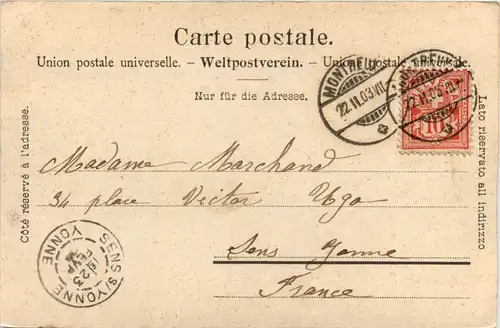 Carte postale.
Union postale universelle. – Weltpostverein. – Unione postale universale.
Nur für die Adresse.
Côté réservé à l'adresse.
Lato riservato all indirizzo
MONTREUX
22.VI.03.VII
MONTREUX
22.VI.03.VII
10
Madame Marchand
34 place Victor Ugo
Sens Yonne
France
SENS S/YONNE
23
YONNE